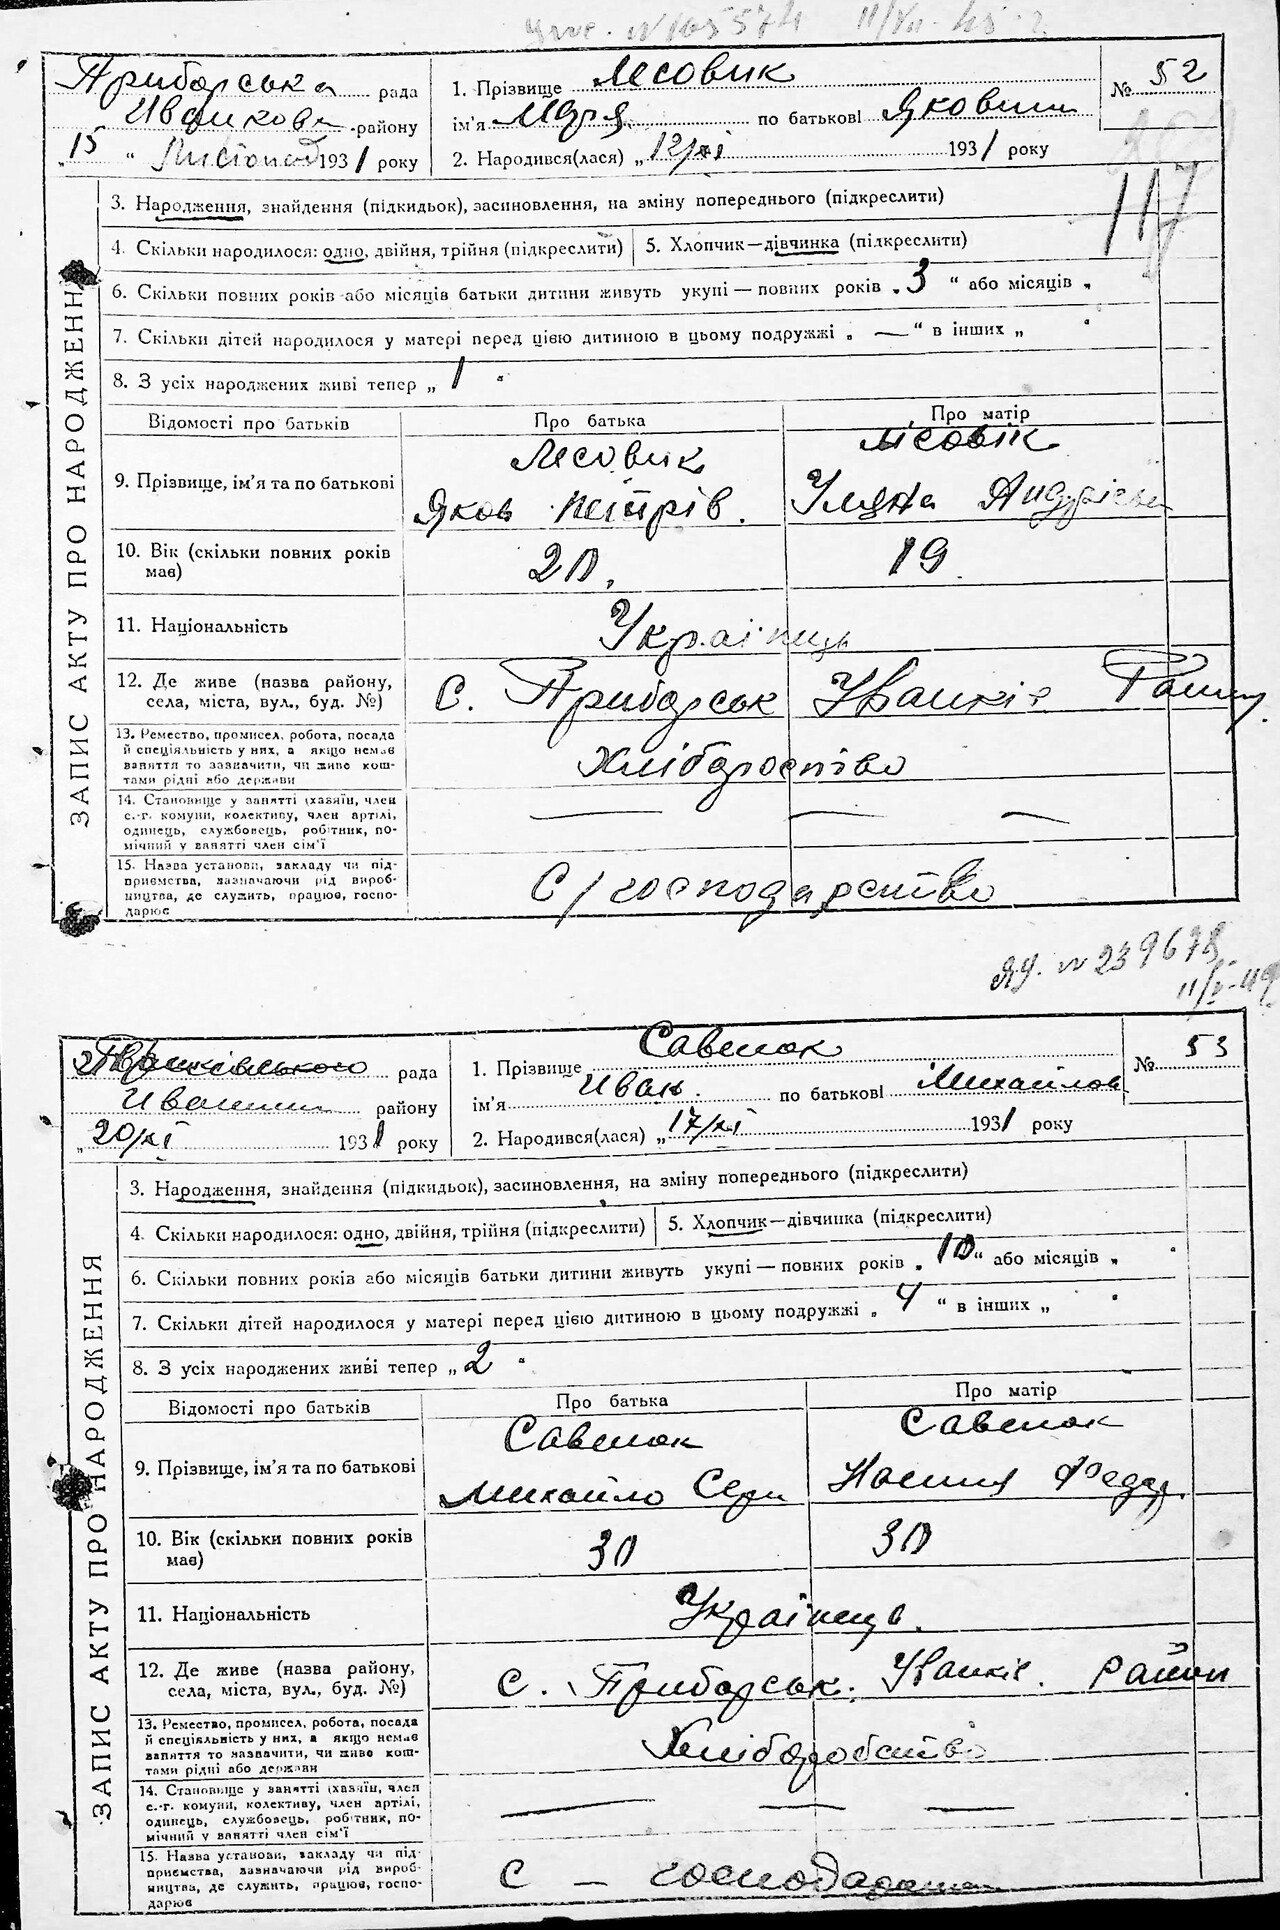 N 165574
Приборська рада
Иванкове району
„15 “ Листопад 1931 року
1. Прізвище Лесовик
ім'я Марія по батькові Яковим
2. Народився(лася) „12/XI 1931 року
№ 52
117
ЗАПИС АКТУ ПРО НАРОДЖЕННЯ
3. Народження, знайдення (підкидьок), засиновлення, на зміну попереднього (підкреслити)
4. Скільки народилося: одно, двійня, трійня (підкреслити) 5. Хлопчик—дівчинка (підкреслити)
6. Скільки повних років або місяців батьки дитини живуть укупі — повних років „3 “ або місяців „
7. Скільки дітей народилося у матері перед цією дитиною в цьому подружжі „ — “ в інших „ “
8. З усіх народжених живі тепер „ 1 “
Відомості про батьків Про батька Про матір
9. Прізвище, ім'я та по батькові
Лесовик
Яков Петрів.
Лісовік
Уляна Андрієвн
10. Вік (скільки повних років має)
20. 19
11. Національність Українць
12. Де живе (назва району,
села, міста, вул., буд. №)
С. Приборськ Иванків Району
13. Ремество, промисел, робота, посада
й спеціяльність у них, а якщо немає
заняття то зазначити, чи живе кош-
тами рідні або держави
Хліборобство
14. Становище у занятті (хазяїн, член
с.-г. комуни, колективу, член артілі,
одинець, службовець, робітник, по-
мічний у занятті член сім'ї
— — —
15. Назва установи, закладу чи під-
приємства, зазначаючи рід вироб-
ництва, де служить, працює, госпо-
дарює
С/господарство
N 239678
11/V-49
рада
району
„20/XI 1931 року
1. Прізвище Савенок
ім'я Иван по батькові Михайлов
2. Народився(лася) „17/XI 1931 року
№ 53
ЗАПИС АКТУ ПРО НАРОДЖЕННЯ
3. Народження, знайдення (підкидьок), засиновлення, на зміну попереднього (підкреслити)
4. Скільки народилося: одно, двійня, трійня (підкреслити) 5. Хлопчик—дівчинка (підкреслити)
6. Скільки повних років або місяців батьки дитини живуть укупі — повних років „ 10 “ або місяців „ “
7. Скільки дітей народилося у матері перед цією дитиною в цьому подружжі „ 4 “ в інших „ “
8. З усіх народжених живі тепер „ 2 “
Відомості про батьків Про батька Про матір
9. Прізвище, ім'я та по батькові
Савенок
Михайло
Савенок
Федор.
10. Вік (скільки повних років
має)
30 30
11. Національність Українць.
12. Де живе (назва району,
села, міста, вул., буд. №)
С. Приборськ. Иванків. район
13. Ремество, промисел, робота, посада
й спеціяльність у них, а якщо немає
заняття то зазначити, чи живе кош-
тами рідні або держави
Хліборобство
14. Становище у занятті (хазяїн, член
с.-г. комуни, колективу, член артілі,
одинець, службовець, робітник, по-
мічний у занятті член сім'ї
— — —
15. Назва установи, закладу чи під-
приємства, зазначаючи рід вироб-
ництва, де служить, працює, госпо-
дарює
С —